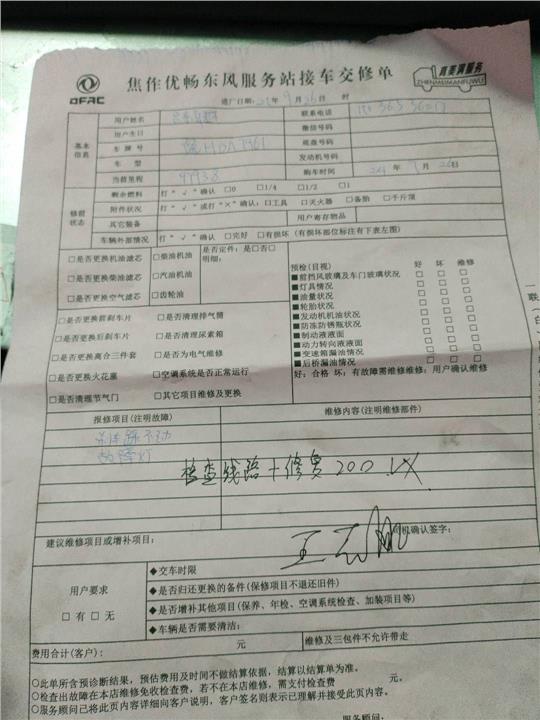 DFAC
焦作优畅东风服务站接车交修单
真美满服务
ZHENMEIMANFUWU
进厂日期: 21年 9月 26日 时
基本信息
用户姓名
联系电话
用户生日
微信号码
车牌号
底盘号码
车型
发动机号码
当前里程 97938
购车时间 年 9月 26日
修前状态
剩余燃料 打"√"确认 □0 □1/4 □1/2 □1
附件状况 打"√"或打"×"确认:□工具 □灭火器 □备胎 □千斤顶
其它装备
用户寄存物品
车辆外部情况 打"√"确认 □完好 □有损坏 (有损坏部位标注有下表左图)
□是否更换机油滤芯 □柴油机油
□是否更换柴油滤芯 □汽油机油
□是否更换空气滤芯 □齿轮油
是否定件:是□否□
明细:
□是否更换前刹车片 □是否清理排气筒
□是否更换后刹车片 □是否清理尿素箱
□是否更换离合三件套 □是否为电气维修
□是否更换火花塞 □空调系统是否正常运行
□是否清理节气门 □其它项目维修及更换
预检(目视) 好 坏 维修
■前挡风玻璃及车门玻璃状况 □ □ □
■灯具情况 □ □ □
■油量状况 □ □ □
■轮胎状况 □ □ □
■发动机机油状况 □ □ □
■防冻防锈瓶状况 □ □ □
■制动液液面 □ □ □
■动力转向液液面 □ □ □
■变速箱漏油情况 □ □ □
■后桥漏油情况 □ □ □
好:合格 坏:有故障需维修维修:用户确认维修
报修项目(注明故障)
维修内容(注明维修部件)
刹车踩不动
故障灯
检查线路+修复200
建议维修项目或增补项目:
司机确认签字:
用户要求
□有 □无
◆交车时限
◆是否归还更换的备件(保修项目不退还旧件)
◆是否增补其他项目(保养、年检、空调系统检查、加装项目等)
◆车辆是否需要清洁:
费用合计(客户): 元
维修及三包件不允许带走
○此单所含预诊断结果,预估费用及时间不做结算依据,结算以结算单为准。
○检查出故障在本店维修免收检查费,若不在本店维修,需支付检查费 元。
○服务顾问已将此页内容详细向客户说明,客户签名则表示已理解并接受此页内容。
服务顾问:
一联